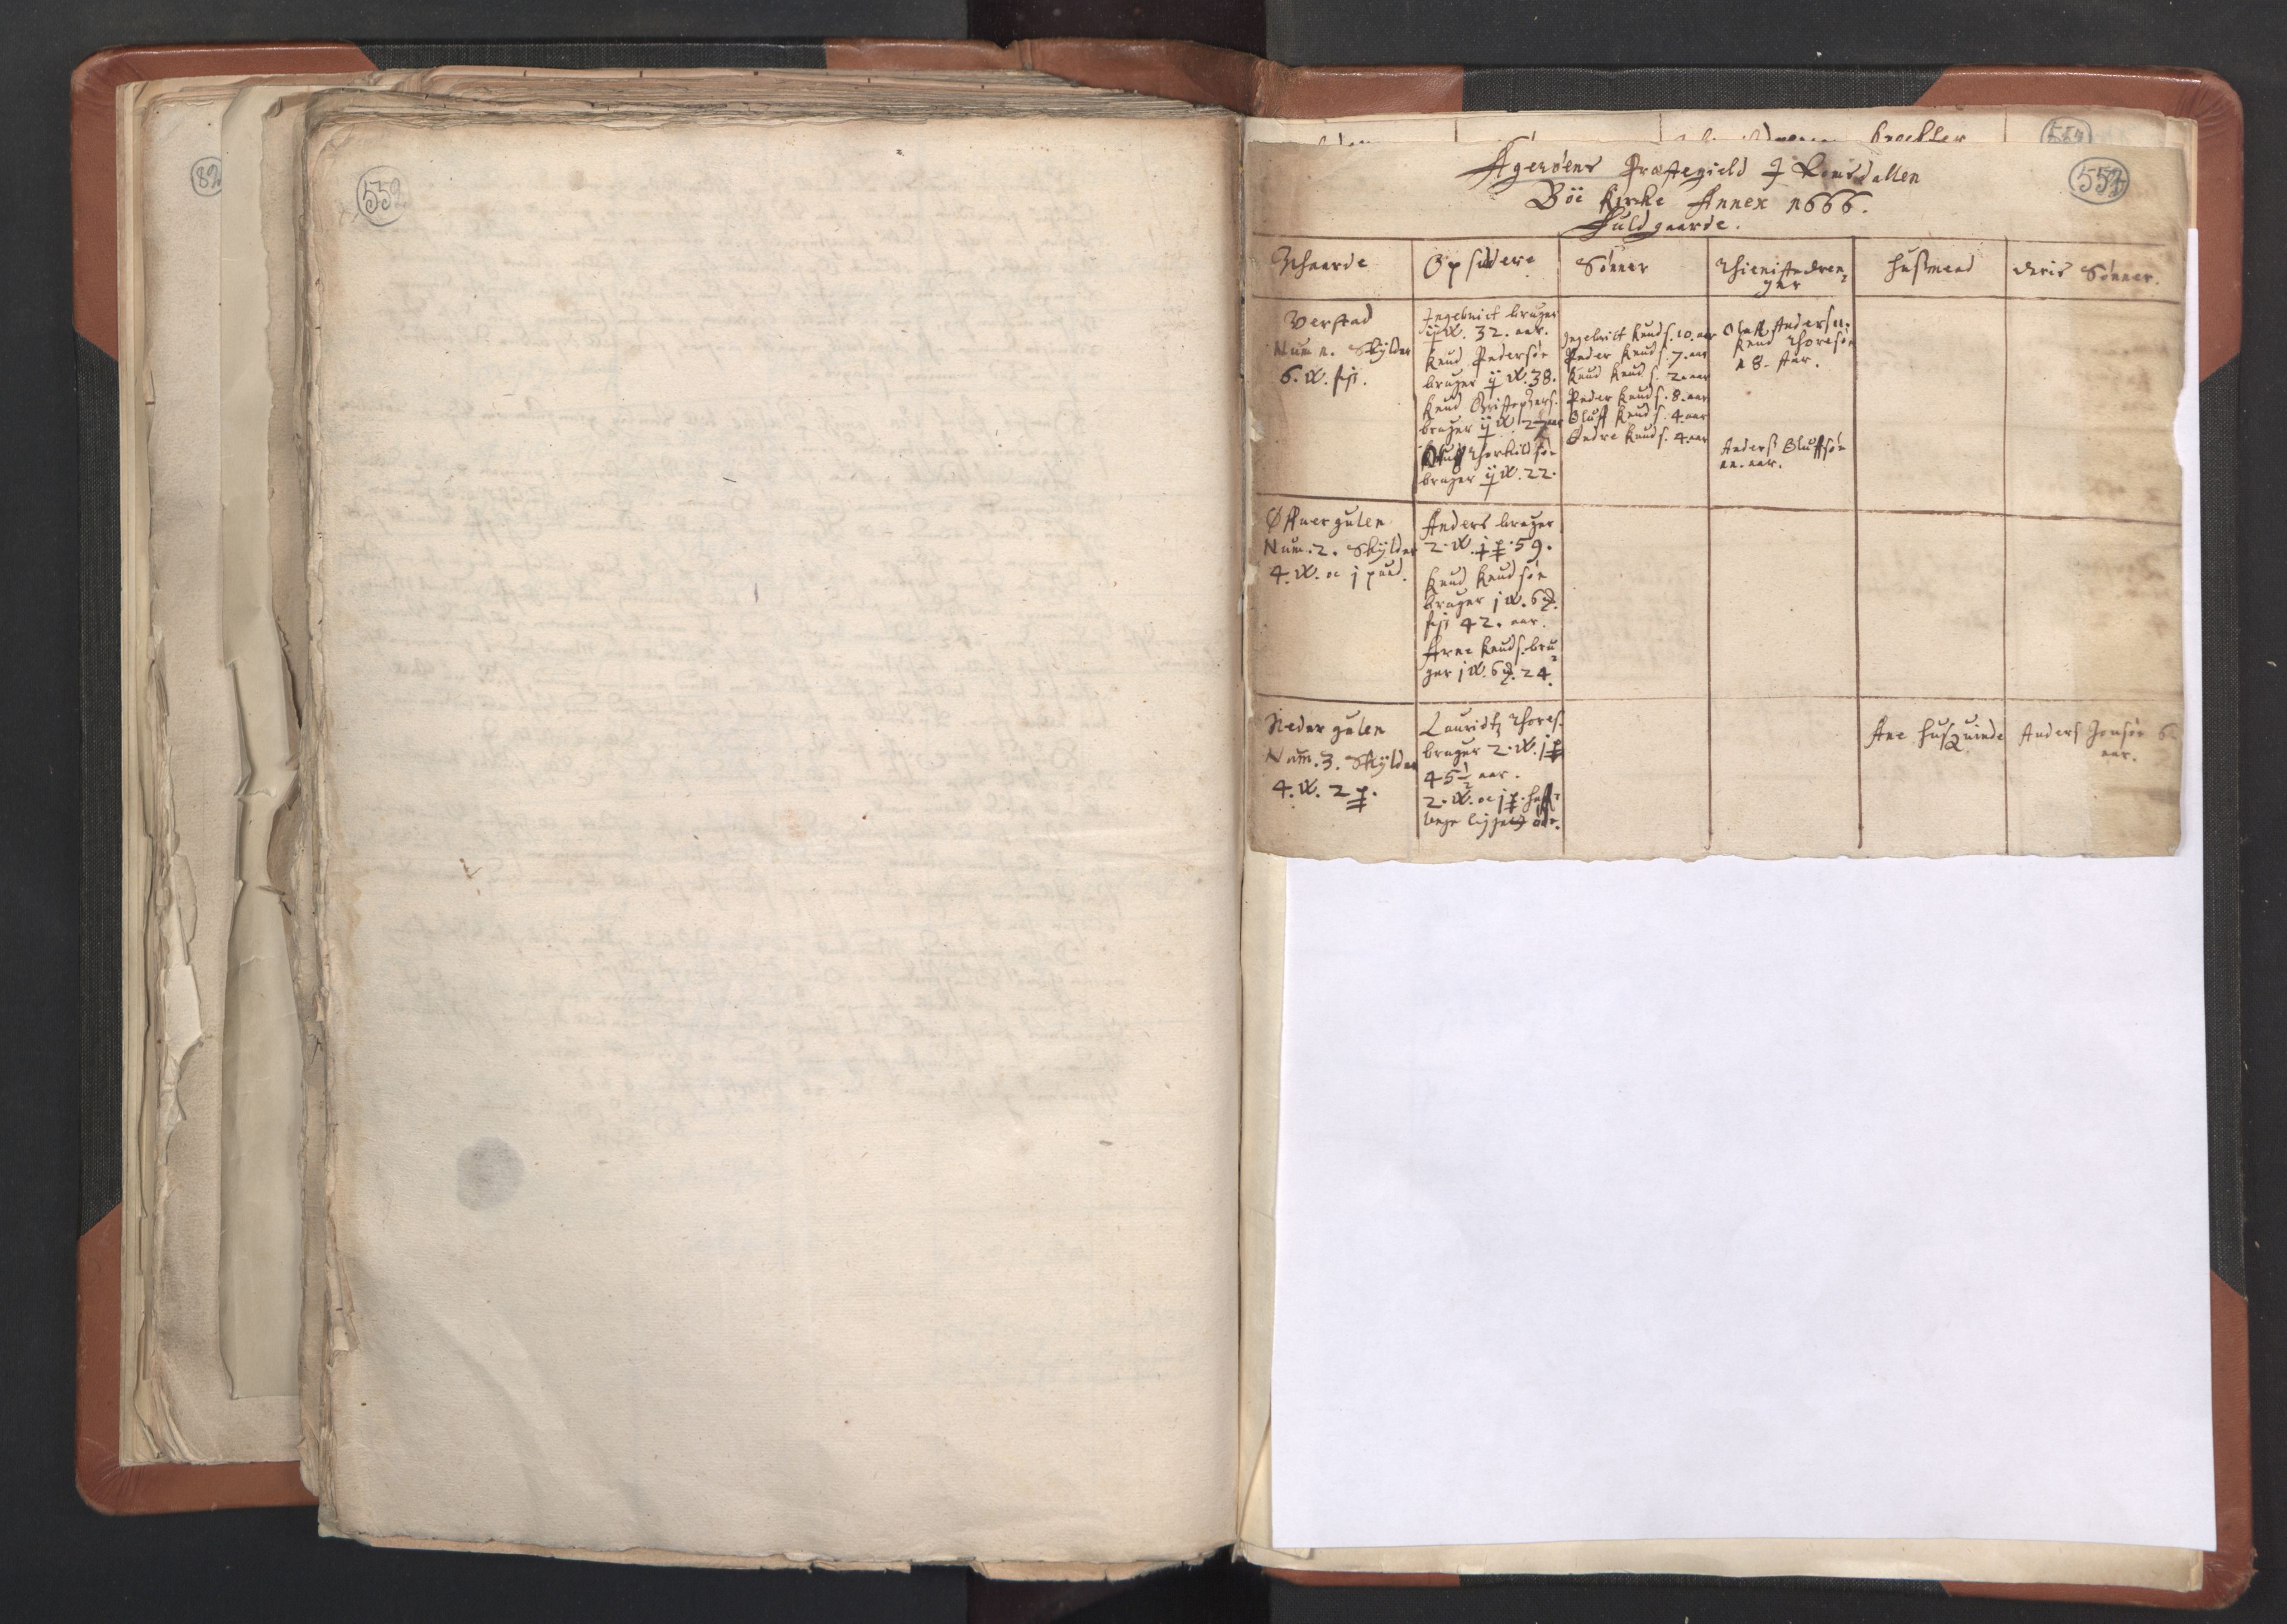 82
552
554
Agerøens Præstegield I Romsdallen
Böe Kircke Annex 1666.
Fuldgaarde.
Ghaarde
Opsidere
Sønner
Thienistedren-
ger
Husmend
deris Sønner.
Verstad
Num 1. Skylder
6. W. fisk.
Ingebrict bruger
ij W. 32. aar.
Knud Pedersøn
bruger ij W. 38.
Knud Christophers.
bruger ij W.
Oluff Thorkildsøn
bruger ij W. 22.
Ingebrict Knuds. 10. aar
Peder Knuds. 7. aar
Knud Knuds. 2. aar
Peder Knuds. 8. aar
Oluff Knuds. 4. aar
Endre Knuds. 4. aar
Oluff Andersøn.
Knud Thoresøn
18. Aar.
Anders Oluffsøn
11. aar.
Øffuergulen
Num. 2. Skylder
4. W. oc j pund.
Anders bruger
2. W. j p. 59.
Knud Knudsøn
bruger j W.
fisk 42. aar.
Arne Knuds. bru
ger j W. 24.
Nedergulen
Num. 3. Skylder
4. W. 2 p.
Lauridtz Thores.
bruger 2. W. j p
45 1/2 aar.
2. W. oc j p.
ligger øde.
Ane Husquinde
Anders Jonsøn
aar.